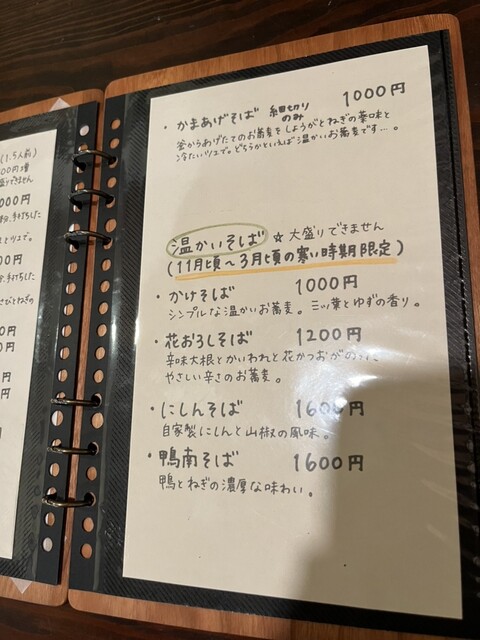 (1.5人前)
00円増
盛りできません
000円
手打ちした
とツエで。
00円
手打ちした
さびとねぎの
0円
0円
円
円
・かまあげそば 細切りのみ 1000円
釜からあげたてのお蕎麦をしょうがとねぎの薬味と
冷たいツエで。どちらかといえば温かいお蕎麦です…。
温かいそば ☆大盛りできません
(11月頃〜3月頃の寒い時期限定)
・かけそば 1000円
シンプルな温かいお蕎麦。三ッ葉とゆずの香り。
・花おろしそば 1200円
辛味大根とかいわれと花かつおがのった
やさしい辛さのお蕎麦。
・にしんそば 1600円
自家製にしんと山椒の風味。
・鴨南そば 1600円
鴨とねぎの濃厚な味わい。